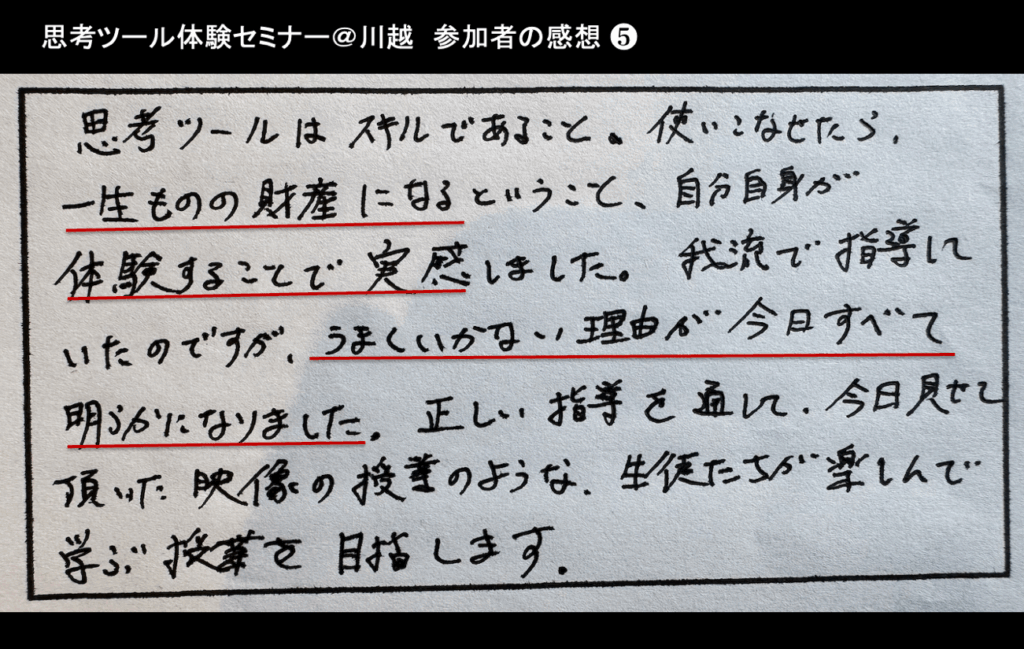 思考ツール体験セミナー＠川越　参加者の感想 ❺
思考ツールは スキルであること。使いこなせたら、
一生ものの財産になるということ、自分自身が
体験することで実感しました。我流で指導して
いたのですが、うまくいかない理由が今日すべて
明らかになりました。正しい指導を通して、今日見せて
頂いた映像の授業のような、生徒たちが楽しんで
学ぶ授業を目指します。